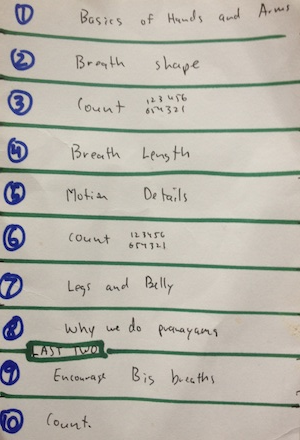 1 Basics of Hands and Arms
2 Breath shape
3 Count 123456
654321
4 Breath Length
5 Motion Details
6 Count 123456
654321
7 Legs and Belly
8 Why we do pranayama
LAST TWO
9 Encourage Big breaths
10 Count.